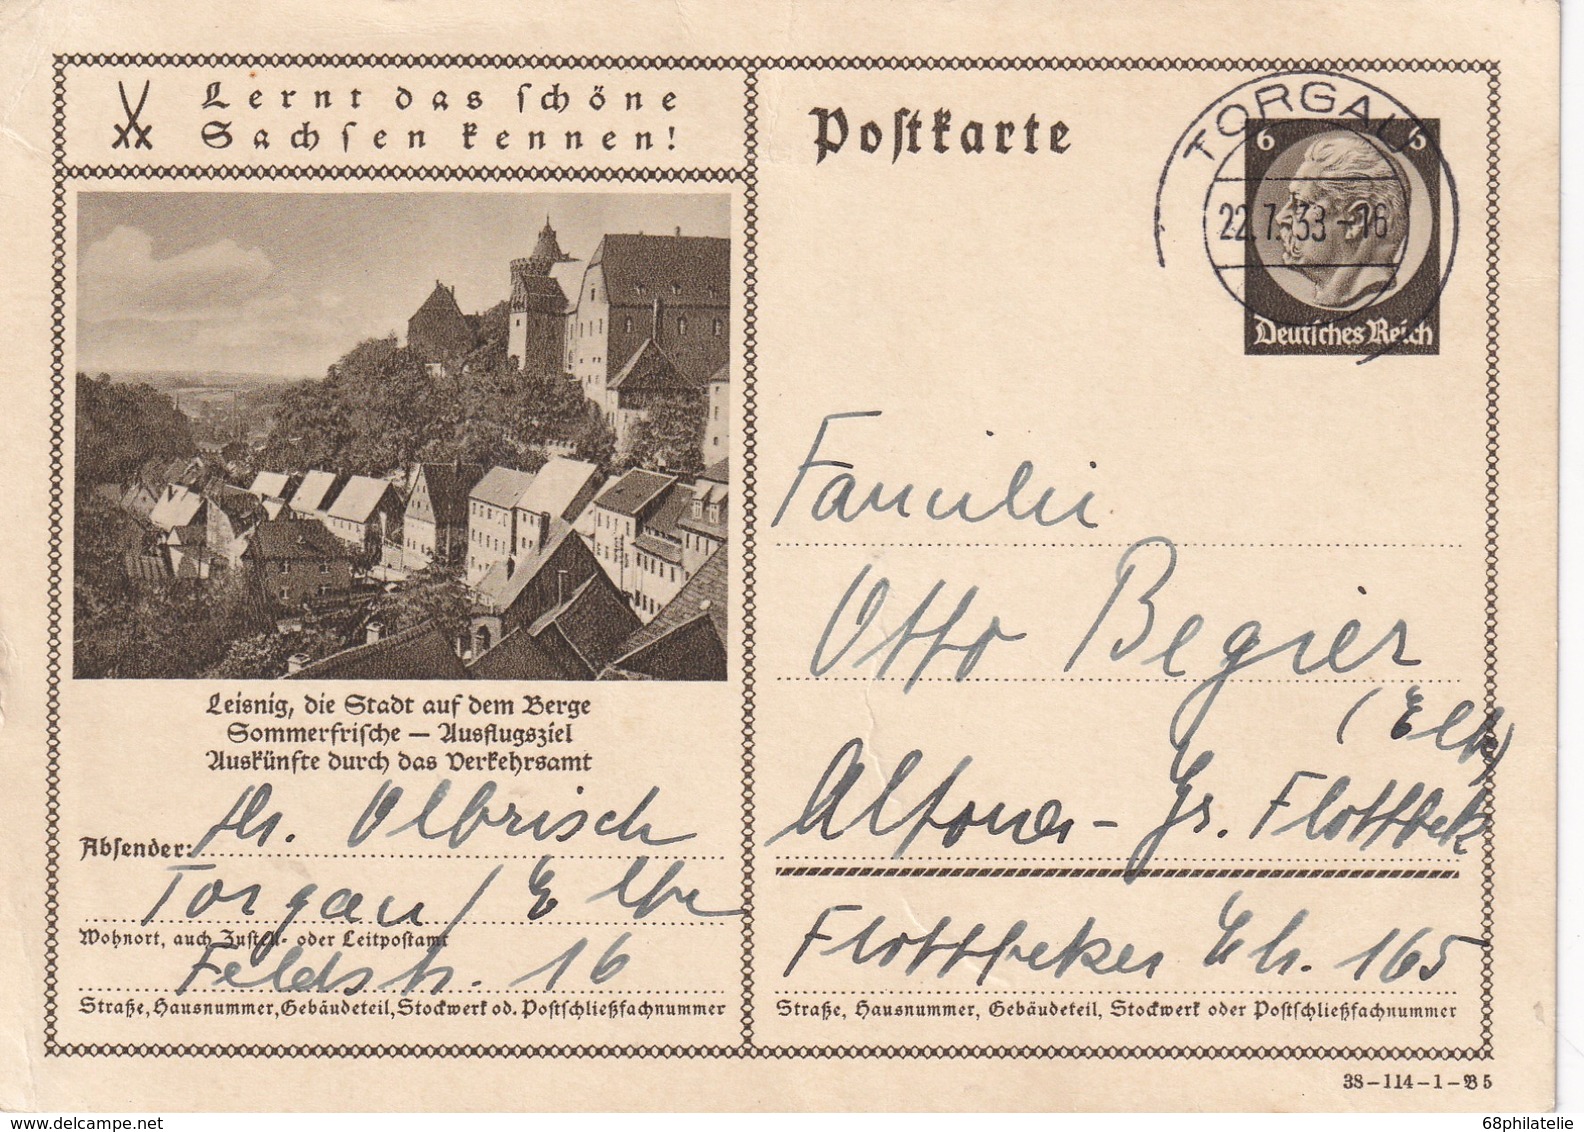 Lernt das schöne
Sachsen kennen!
Leisnig, die Stadt auf dem Berge
Sommerfrische — Ausflugsziel
Auskünfte durch das Verkehrsamt
Absender: Olbrisch
Torgau / Elbe
Wohnort, auch Zustell- oder Leitpostamt
Feldstr. 16
Straße, Hausnummer, Gebäudeteil, Stockwerk od. Postschließfachnummer
Postkarte
TORGAU
22.7.38-16
6 6
Deutsches Reich
Familie
Otto Begier
(Elbe)
Altona - Gr. Flottbek
Flottbeker Ch. 165
Straße, Hausnummer, Gebäudeteil, Stockwerk oder Postschließfachnummer
38-114-1-B5
68philatelie